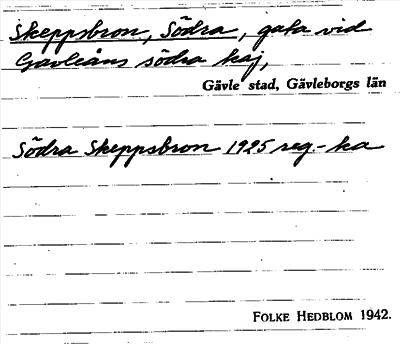 Skeppsbron, Södra, gata vid
Gavleåns södra kaj,
Gävle stad, Gävleborgs län
Södra Skeppsbron 1925 reg.-ka
FOLKE HEDBLOM 1942.